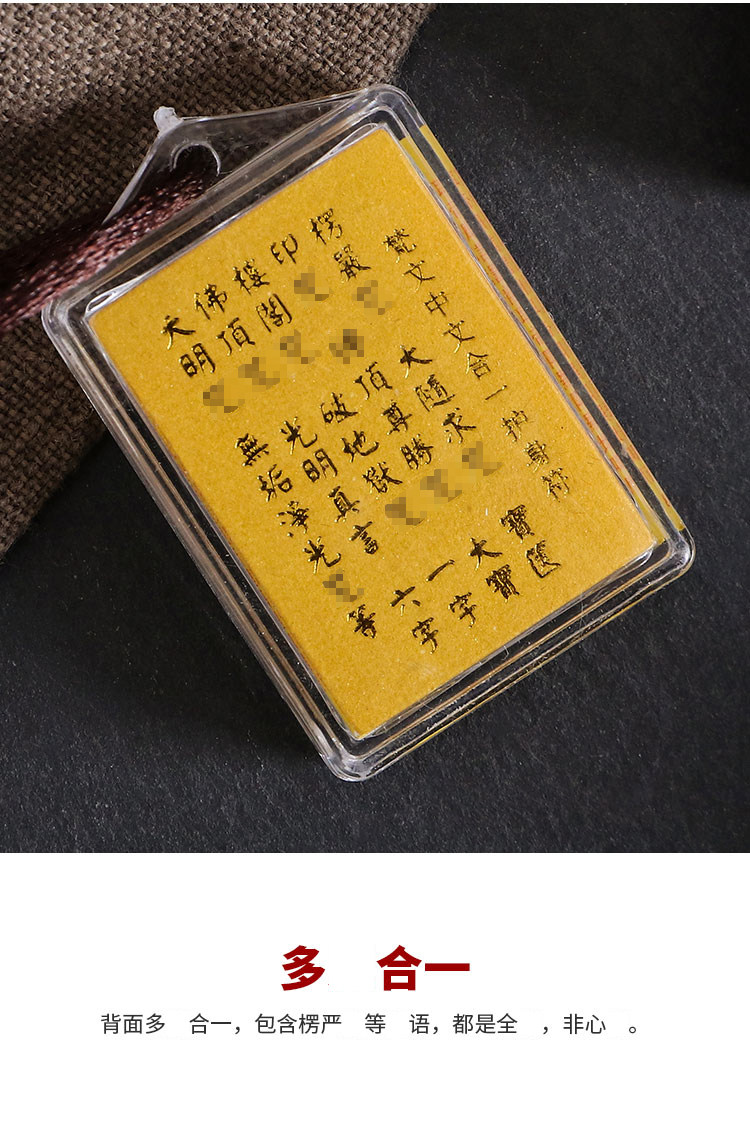 梵文中文合一护身符
楞嚴
印
樓閣
佛頂
大明
大隨求
頂尊勝
破地獄
光明真言
無垢淨光
寶篋
大寶
一字
六字
等
多 合一
背面多 合一，包含楞严 等 语，都是全 ，非心 。